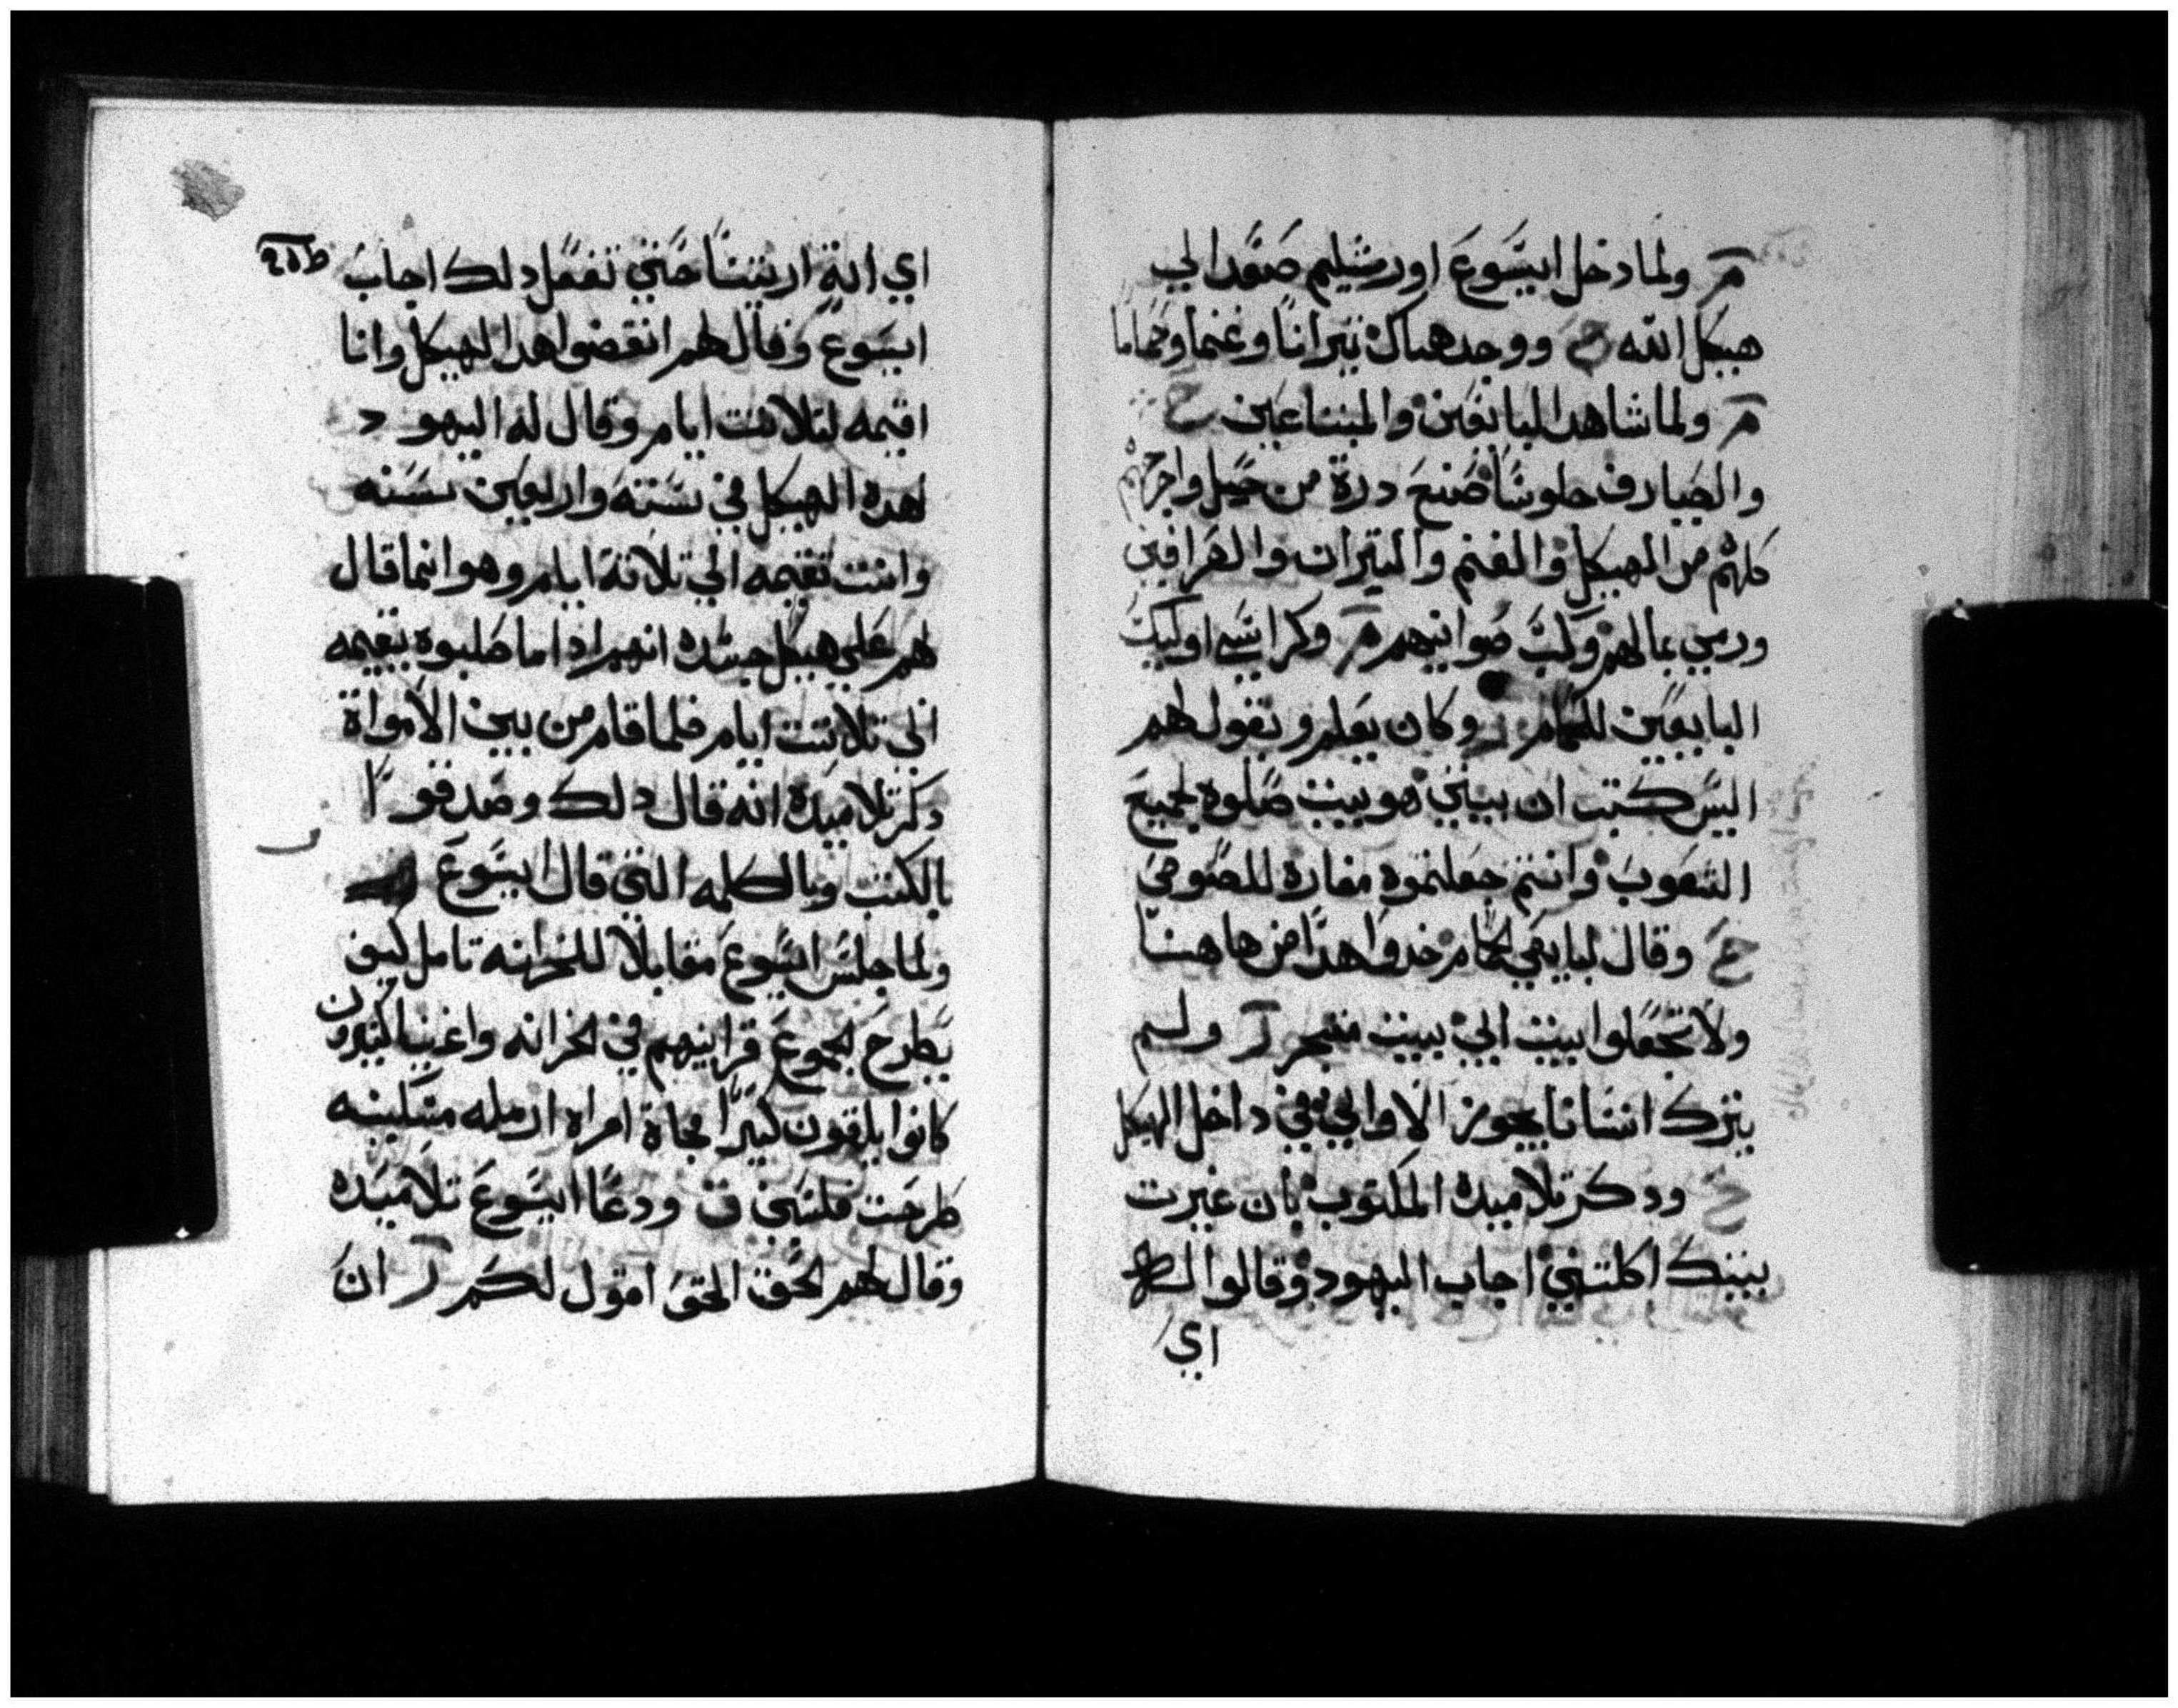 مر ولما دخل ايسوع اورشليم صعد الي
هيكل الله ح ووجد هناك تيرانا وغنما وحماما
مر ولما شاهد البايعين والمبتاعين ح
والصيارف جلوسا صنع درة من حبل واخرجهم
كلهم من الهيكل والغنم والتيران والصرافين
ورمي بمالهم وكب صوانيهم مر وكراسي اوليك
البايعين للحمام ر وكان يعلم ويقول لهم
اليس كتب ان بيتي هو بيت صلوه لجميع
الشعوب وانتم جعلتموه مغاره للصوص
ح وقال لبايعي الحمام خدوا هدا من هاهنا
ولا تجعلوا بيت ابي بيت متجر ر ولم
يترك انسانا يجوز الاواني في داخل الهيكل
ح ودكر تلاميده المكتوب بان غيرت
بيتك اكلتني اجاب اليهود وقالوا له
اي
اي اية اريتنا حتي تفعل دلك اجاب
ايسوع وقال لهم انقضوا هدا الهيكل وانا
اقيمه لتلاتت ايام وقال له اليهود
لهده الهيكل في ستة واربعين سنه
وانت تقيمه الي تلاتة ايام وهو انما قال
لهم علي هيكل جسده انهم ادا ما صلبوه يقيمه
الي تلاتت ايام فلما قام من بين الامواة
دكر تلاميده انه قال دلك وصدقوا
بالكتب وبالكلمه التي قال ايسوع
ولما جلس ايسوع مقابلا للخزانه تامل كيف
يطرح الجموع قرابينهم في الخزانه واغنيا كتيرون
كانوا يلقون كتيرا فجاة امراه ارمله مسكينه
طرحت فلسين ق ودعا ايسوع تلاميده
وقال لهم الحق الحق اقول لكم ر ان